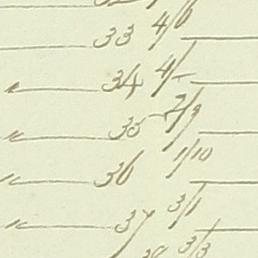 33 4/6
" 34 4/-
" 35 2/9
" 36 1/10
" 37 3/1
38 3/3